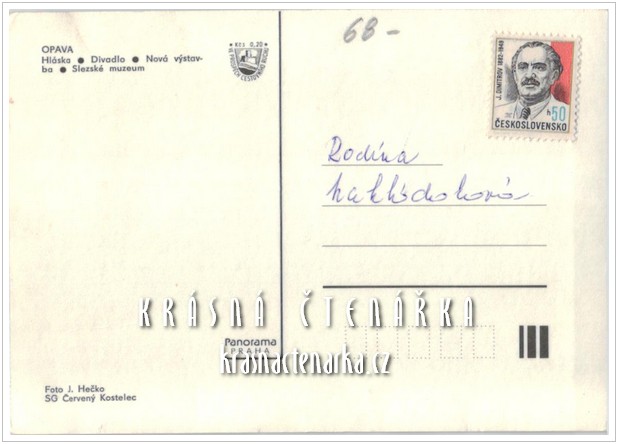 OPAVA
Hláska ● Divadlo ● Nová výstav-
ba ● Slezské muzeum
KČS 0,20
68 -
J. DIMITROV 1882-1949
h 50
ČESKOSLOVENSKO
Rodina
KRÁSNÁ ČTENÁŘKA
Panorama
PRAHA
krasnactenarka.cz
Foto J. Hečko
SG Červený Kostelec